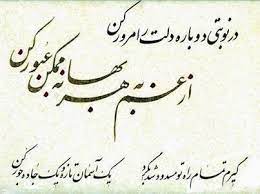 در نوبتی دوباره دلت را مرور کن
از غم به هر بهانهٔ ممکن عبور کن
گیرم تمام راه تو مسدود شد بگرد
یک آسمان تازه و یک جاده جور کن